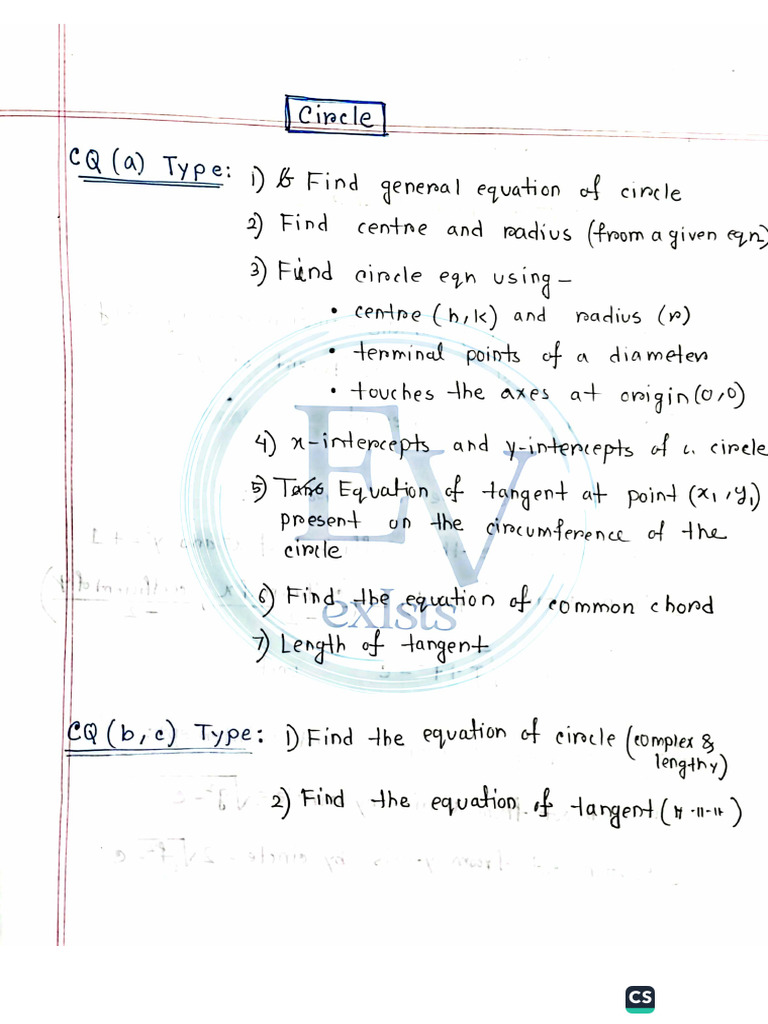 Circle
CQ (a) Type: 1) Find general equation of circle
2) Find centre and radius (from a given eqn)
3) Find circle eqn using –
• centre (h,k) and radius (r)
• terminal points of a diameter
• touches the axes at origin (0,0)
4) x-intercepts and y-intercepts of a circle
5) Equation of tangent at point (x₁, y₁)
present on the circumference of the
circle
6) Find the equation of common chord
exIsts
7) Length of tangent
EV
CQ (b, c) Type: 1) Find the equation of circle (complex &
lengthy)
2) Find the equation of tangent ( 11 -11-11 )
CS